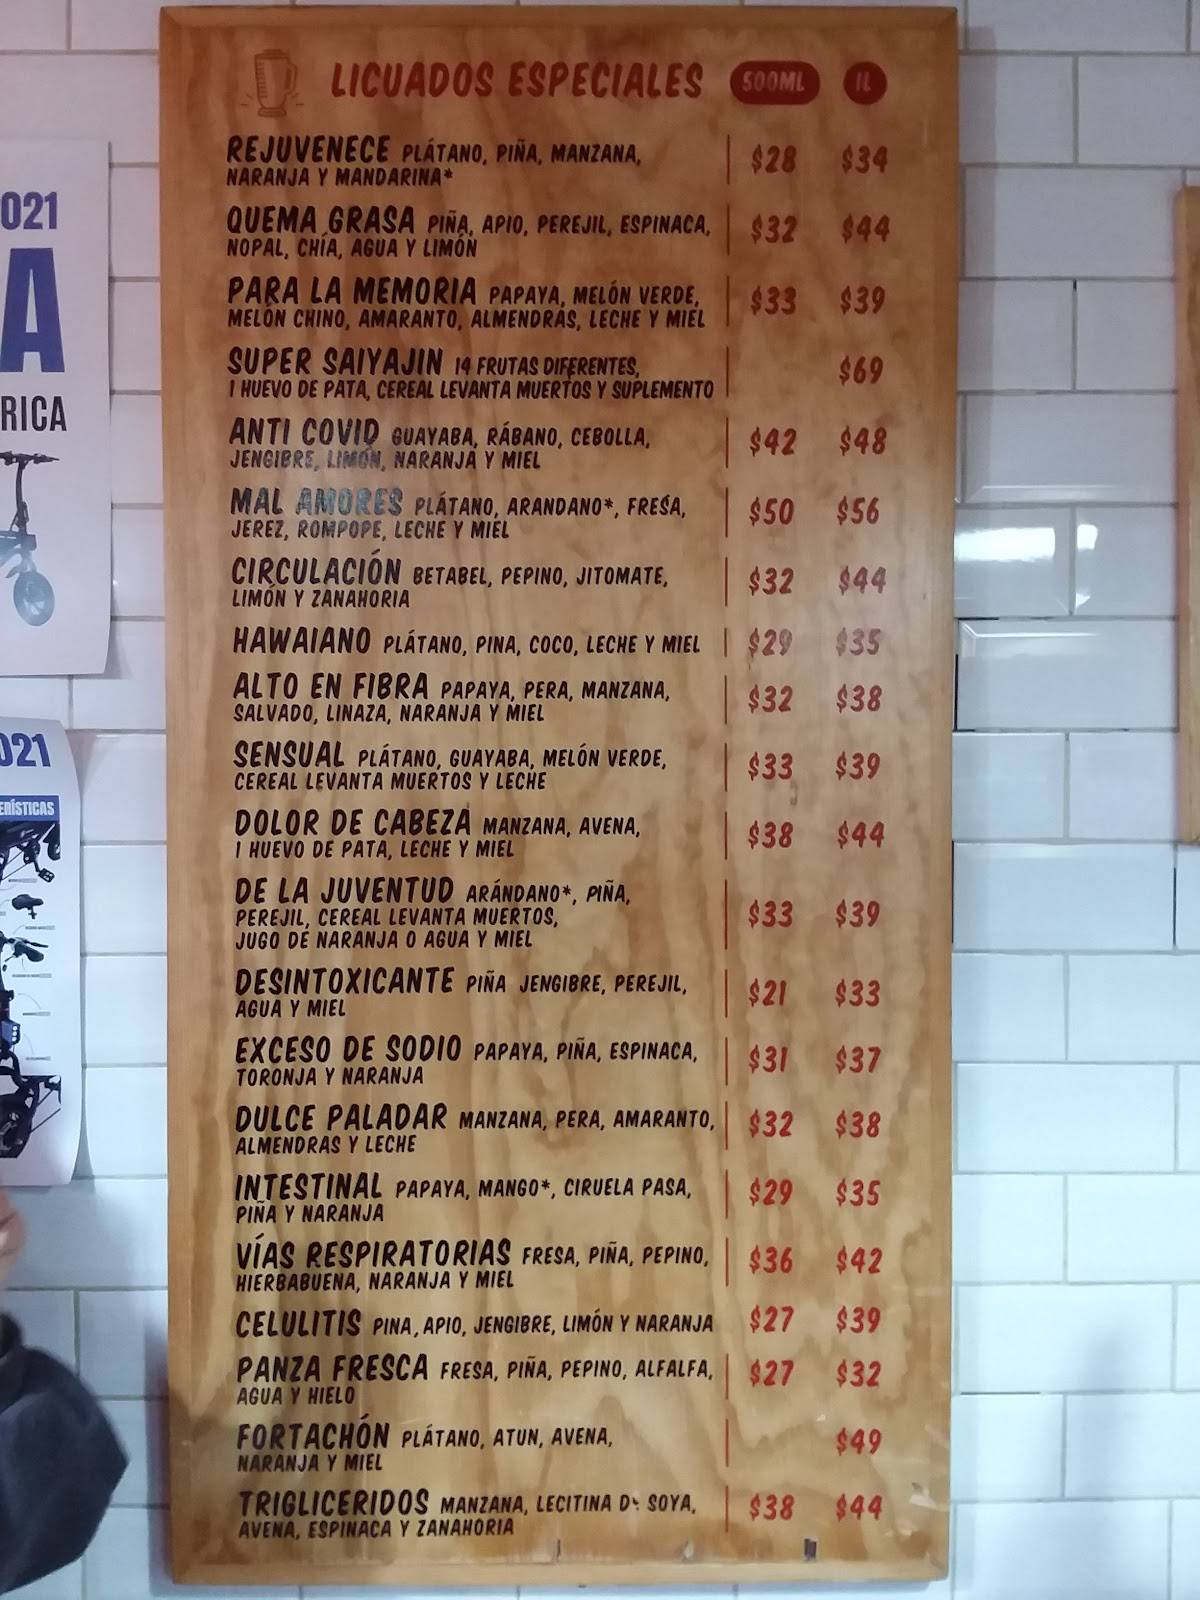 LICUADOS ESPECIALES 500ML 1L
REJUVENECE PLÁTANO, PIÑA, MANZANA, $28 $34
NARANJA Y MANDARINA*
QUEMA GRASA PIÑA, APIO, PEREJIL, ESPINACA, $32 $44
NOPAL, CHÍA, AGUA Y LIMÓN
PARA LA MEMORIA PAPAYA, MELÓN VERDE, $33 $39
MELÓN CHINO, AMARANTO, ALMENDRAS, LECHE Y MIEL
SUPER SAIYAJIN 14 FRUTAS DIFERENTES, $69
1 HUEVO DE PATA, CEREAL LEVANTA MUERTOS Y SUPLEMENTO
ANTI COVID GUAYABA, RÁBANO, CEBOLLA, $42 $48
JENGIBRE, LIMÓN, NARANJA Y MIEL
MAL AMORES PLÁTANO, ARANDANO*, FRESA, $50 $56
JEREZ, ROMPOPE, LECHE Y MIEL
CIRCULACIÓN BETABEL, PEPINO, JITOMATE, $32 $44
LIMÓN Y ZANAHORIA
HAWAIANO PLÁTANO, PINA, COCO, LECHE Y MIEL $29 $35
ALTO EN FIBRA PAPAYA, PERA, MANZANA, $32 $38
SALVADO, LINAZA, NARANJA Y MIEL
SENSUAL PLÁTANO, GUAYABA, MELÓN VERDE, $33 $39
CEREAL LEVANTA MUERTOS Y LECHE
DOLOR DE CABEZA MANZANA, AVENA, $38 $44
1 HUEVO DE PATA, LECHE Y MIEL
DE LA JUVENTUD ARÁNDANO*, PIÑA, $33 $39
PEREJIL, CEREAL LEVANTA MUERTOS,
JUGO DE NARANJA O AGUA Y MIEL
DESINTOXICANTE PIÑA JENGIBRE, PEREJIL, $21 $33
AGUA Y MIEL
EXCESO DE SODIO PAPAYA, PIÑA, ESPINACA, $31 $37
TORONJA Y NARANJA
DULCE PALADAR MANZANA, PERA, AMARANTO, $32 $38
ALMENDRAS Y LECHE
INTESTINAL PAPAYA, MANGO*, CIRUELA PASA, $29 $35
PIÑA Y NARANJA
VÍAS RESPIRATORIAS FRESA, PIÑA, PEPINO, $36 $42
HIERBABUENA, NARANJA Y MIEL
CELULITIS PINA, APIO, JENGIBRE, LIMÓN Y NARANJA $27 $39
PANZA FRESCA FRESA, PIÑA, PEPINO, ALFALFA, $27 $32
AGUA Y HIELO
FORTACHÓN PLÁTANO, ATUN, AVENA, $49
NARANJA Y MIEL
TRIGLICERIDOS MANZANA, LECITINA DE SOYA, $38 $44
AVENA, ESPINACA Y ZANAHORIA
021
A
RICA
021
ERÍSTICAS